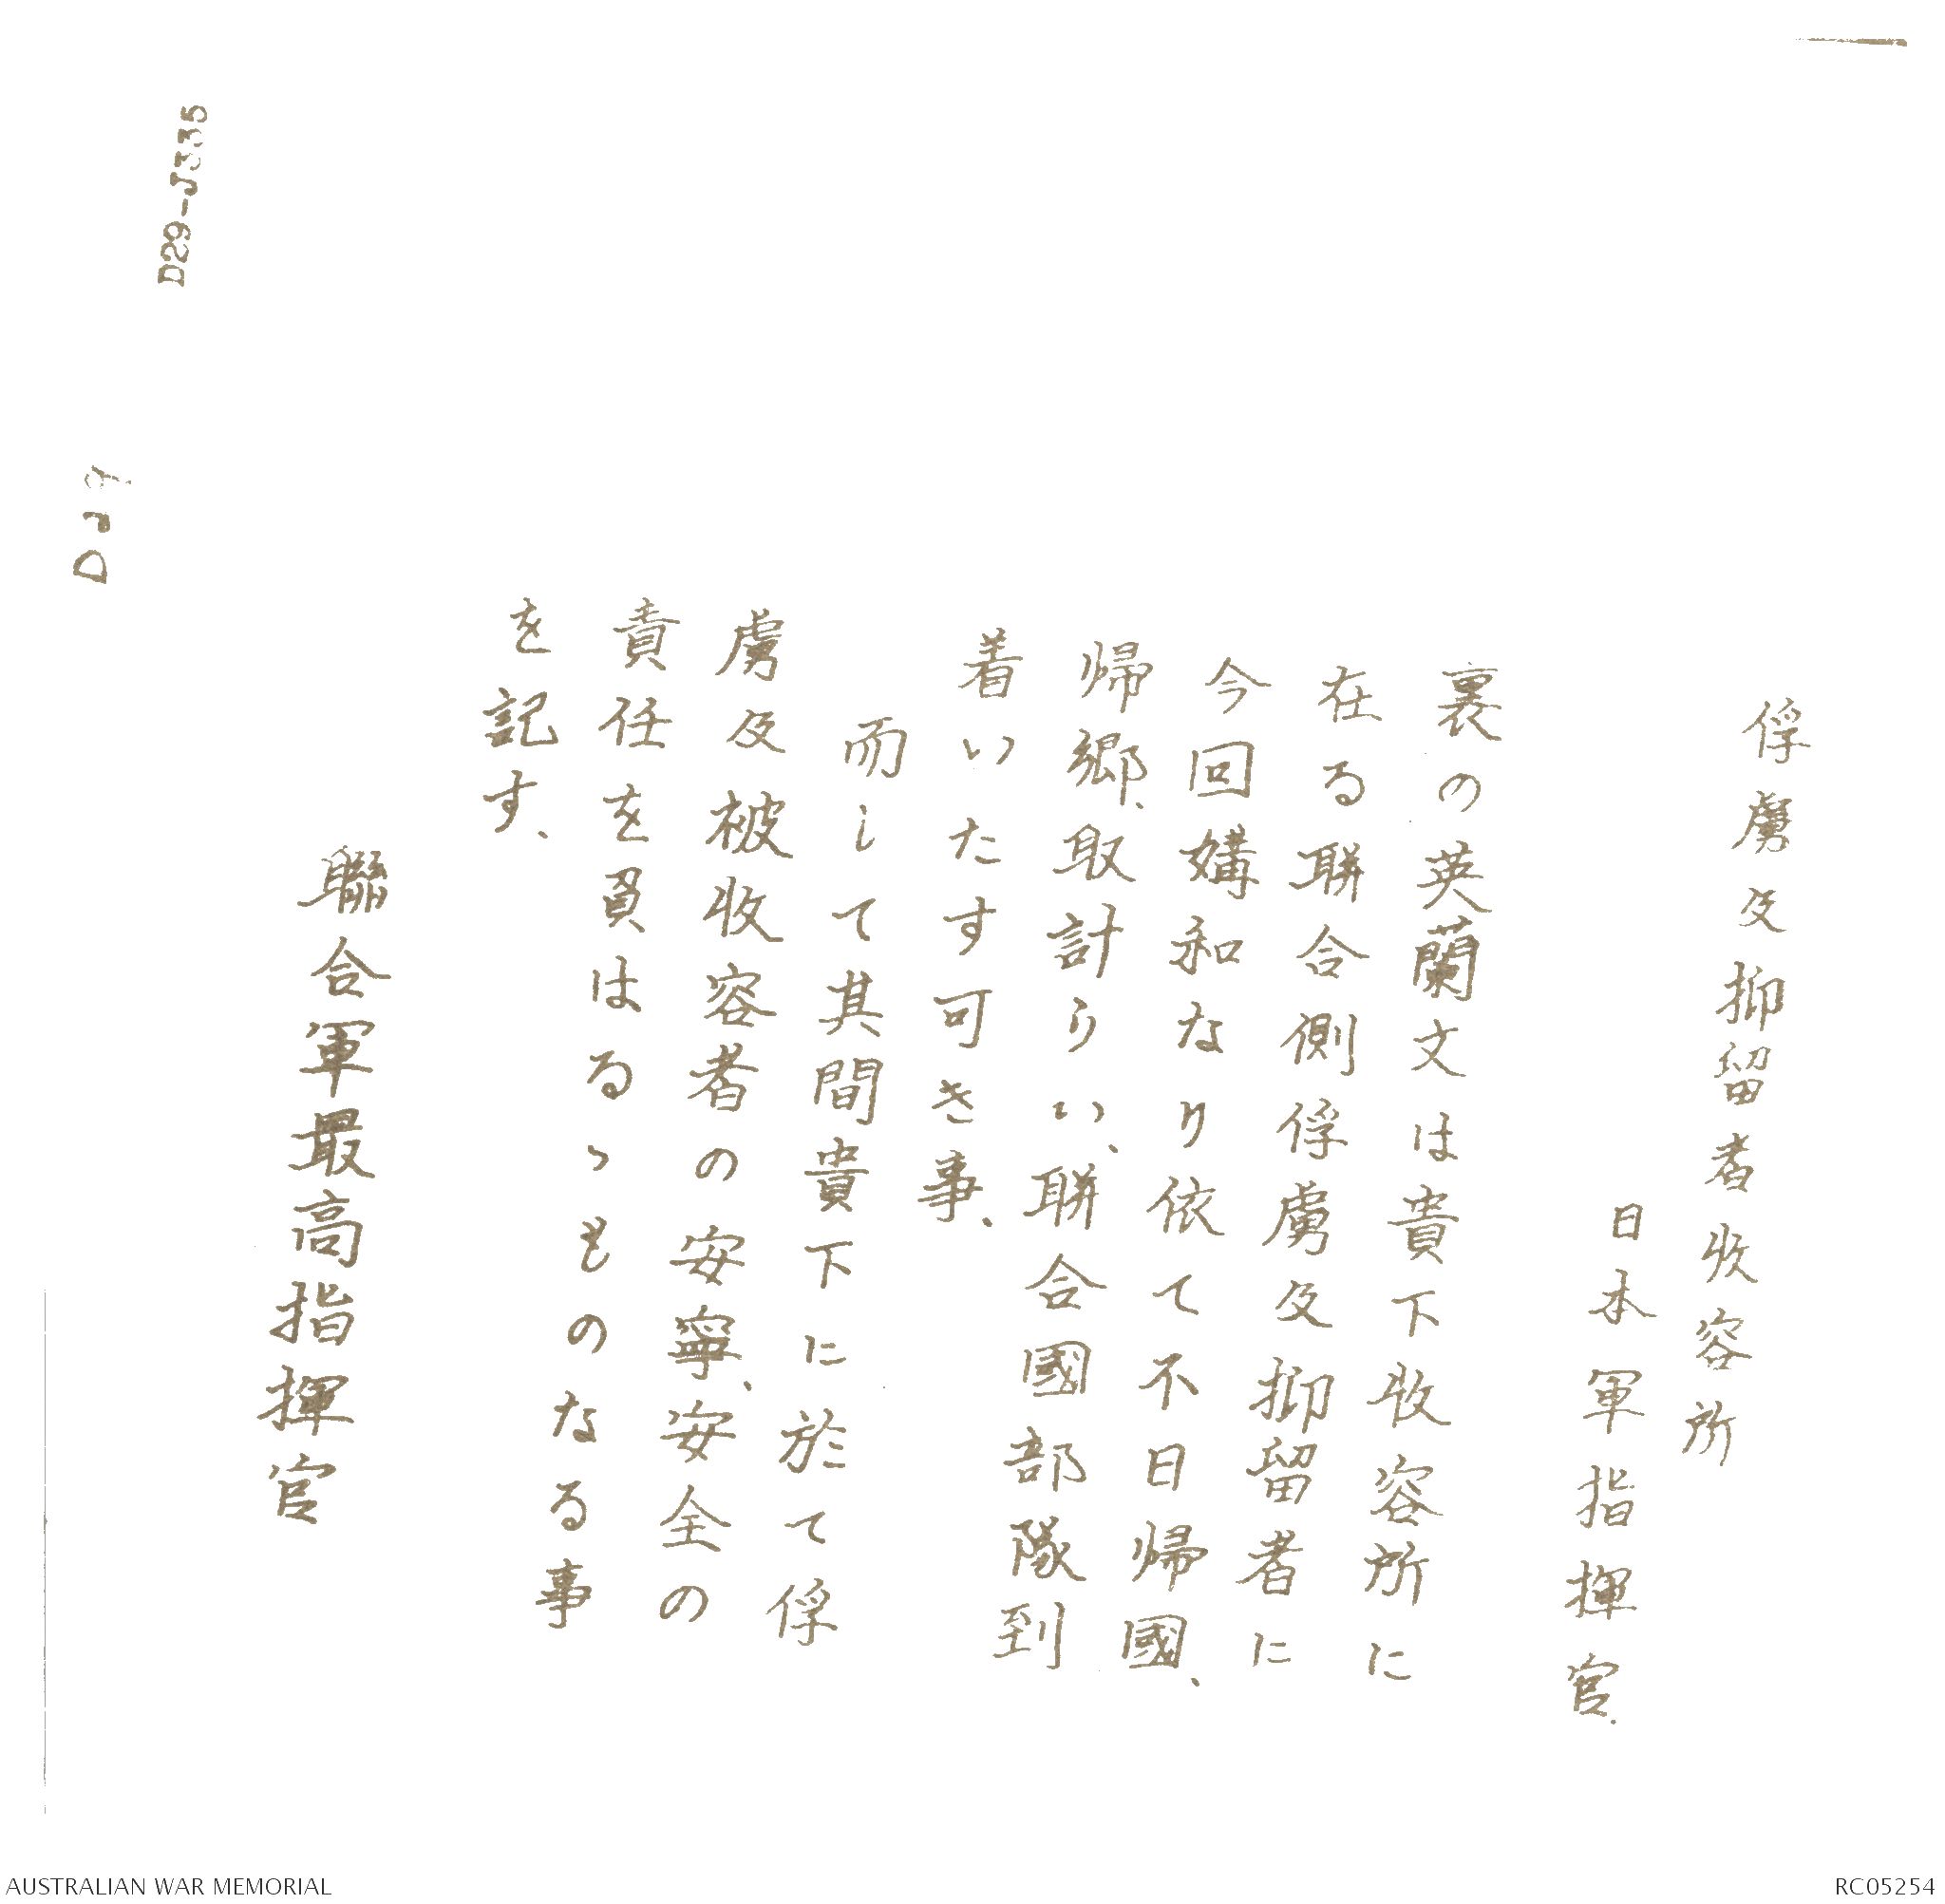 俘虜及抑留者收容所
日本軍指揮官.
裏の英蘭文は貴下收容所に
在る聯合側俘虜及抑留者に
今回媾和なり依て不日帰國、
帰郷、取計らい、聯合國部隊到
着いたす可き事、
而して其間貴下に於て俘
虜及被收容者の安寧、安全の
責任を負はるゝものなる事
を記す、
聯合軍最高指揮官
D29-J335
AUSTRALIAN WAR MEMORIAL
RC05254